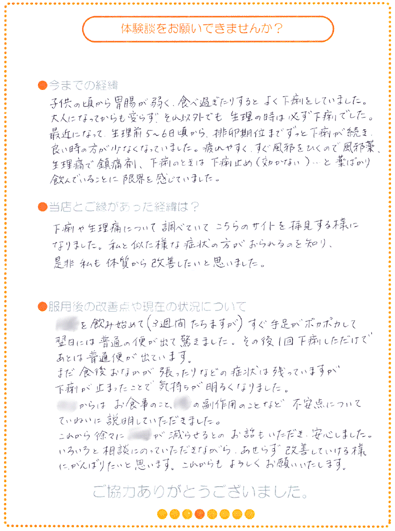 体験談をお願いできませんか？
●今までの経緯
子供の頃から胃腸が弱く、食べ過ぎたりすると よく下痢をしていました。
大人になってからも変らず、それ以外でも 生理の時は必ず下痢でした。
最近になって、生理前5～6日頃から、排卵期位まで ずっと下痢が続き、
良い時の方が少なくなっていました。疲れやすく、すぐ風邪をひくので 風邪薬、
生理痛で鎮痛剤、下痢のときは 下痢止め(効かない)‥と 薬ばかり
飲んでいることに 限界を感じていました。
●当店とご縁があった経緯は？
下痢や生理痛について 調べていて こちらのサイトを 拝見する様に
なりました。私と似た様な 症状の方が おられるのを知り、
是非 私も 体質から 改善したいと思いました。
●服用後の改善点や現在の状況について
を飲み始めて(3週間 たちますが) すぐ手足が ポカポカして
翌日には 普通の便が出て 驚きました。その後 1回下痢しただけで
あとは普通便が出ています。
まだ 食後 おなかが 張ったりなどの 症状は 残っていますが
下痢が 止まったことで 気持ちが 明るくなりました。
からは お食事のこと、 の副作用のことなど 不安点について
ていねいに 説明していただきました。
これから 徐々に が 減らせるとの お話も いただき、安心しました。
いろいろと 相談にのっていただきながら、あせらず 改善していける様
に、がんばりたいと 思います。これからも よろしく お願いいたします。
ご協力ありがとうございました。